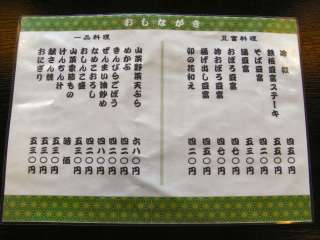 おしながき
豆富料理
冷奴 四五〇円
鉄板豆富ステーキ
そば豆富 四二〇円
温豆富 五五〇円
おぼろ豆富 四七〇円
冷おぼろ豆富 四七〇円
揚げ出し豆富 四五〇円
卯の花和え 四二〇円
一品料理
山菜野菜天ぷら 六八〇円
めかぶ 四二〇円
きんぴらごぼう 四二〇円
ぜんまい油炒め 四八〇円
なめこおろし 四二〇円
おしんこ盛 四二〇円
山菜
けんちん汁
焼
おにぎり 五三〇円